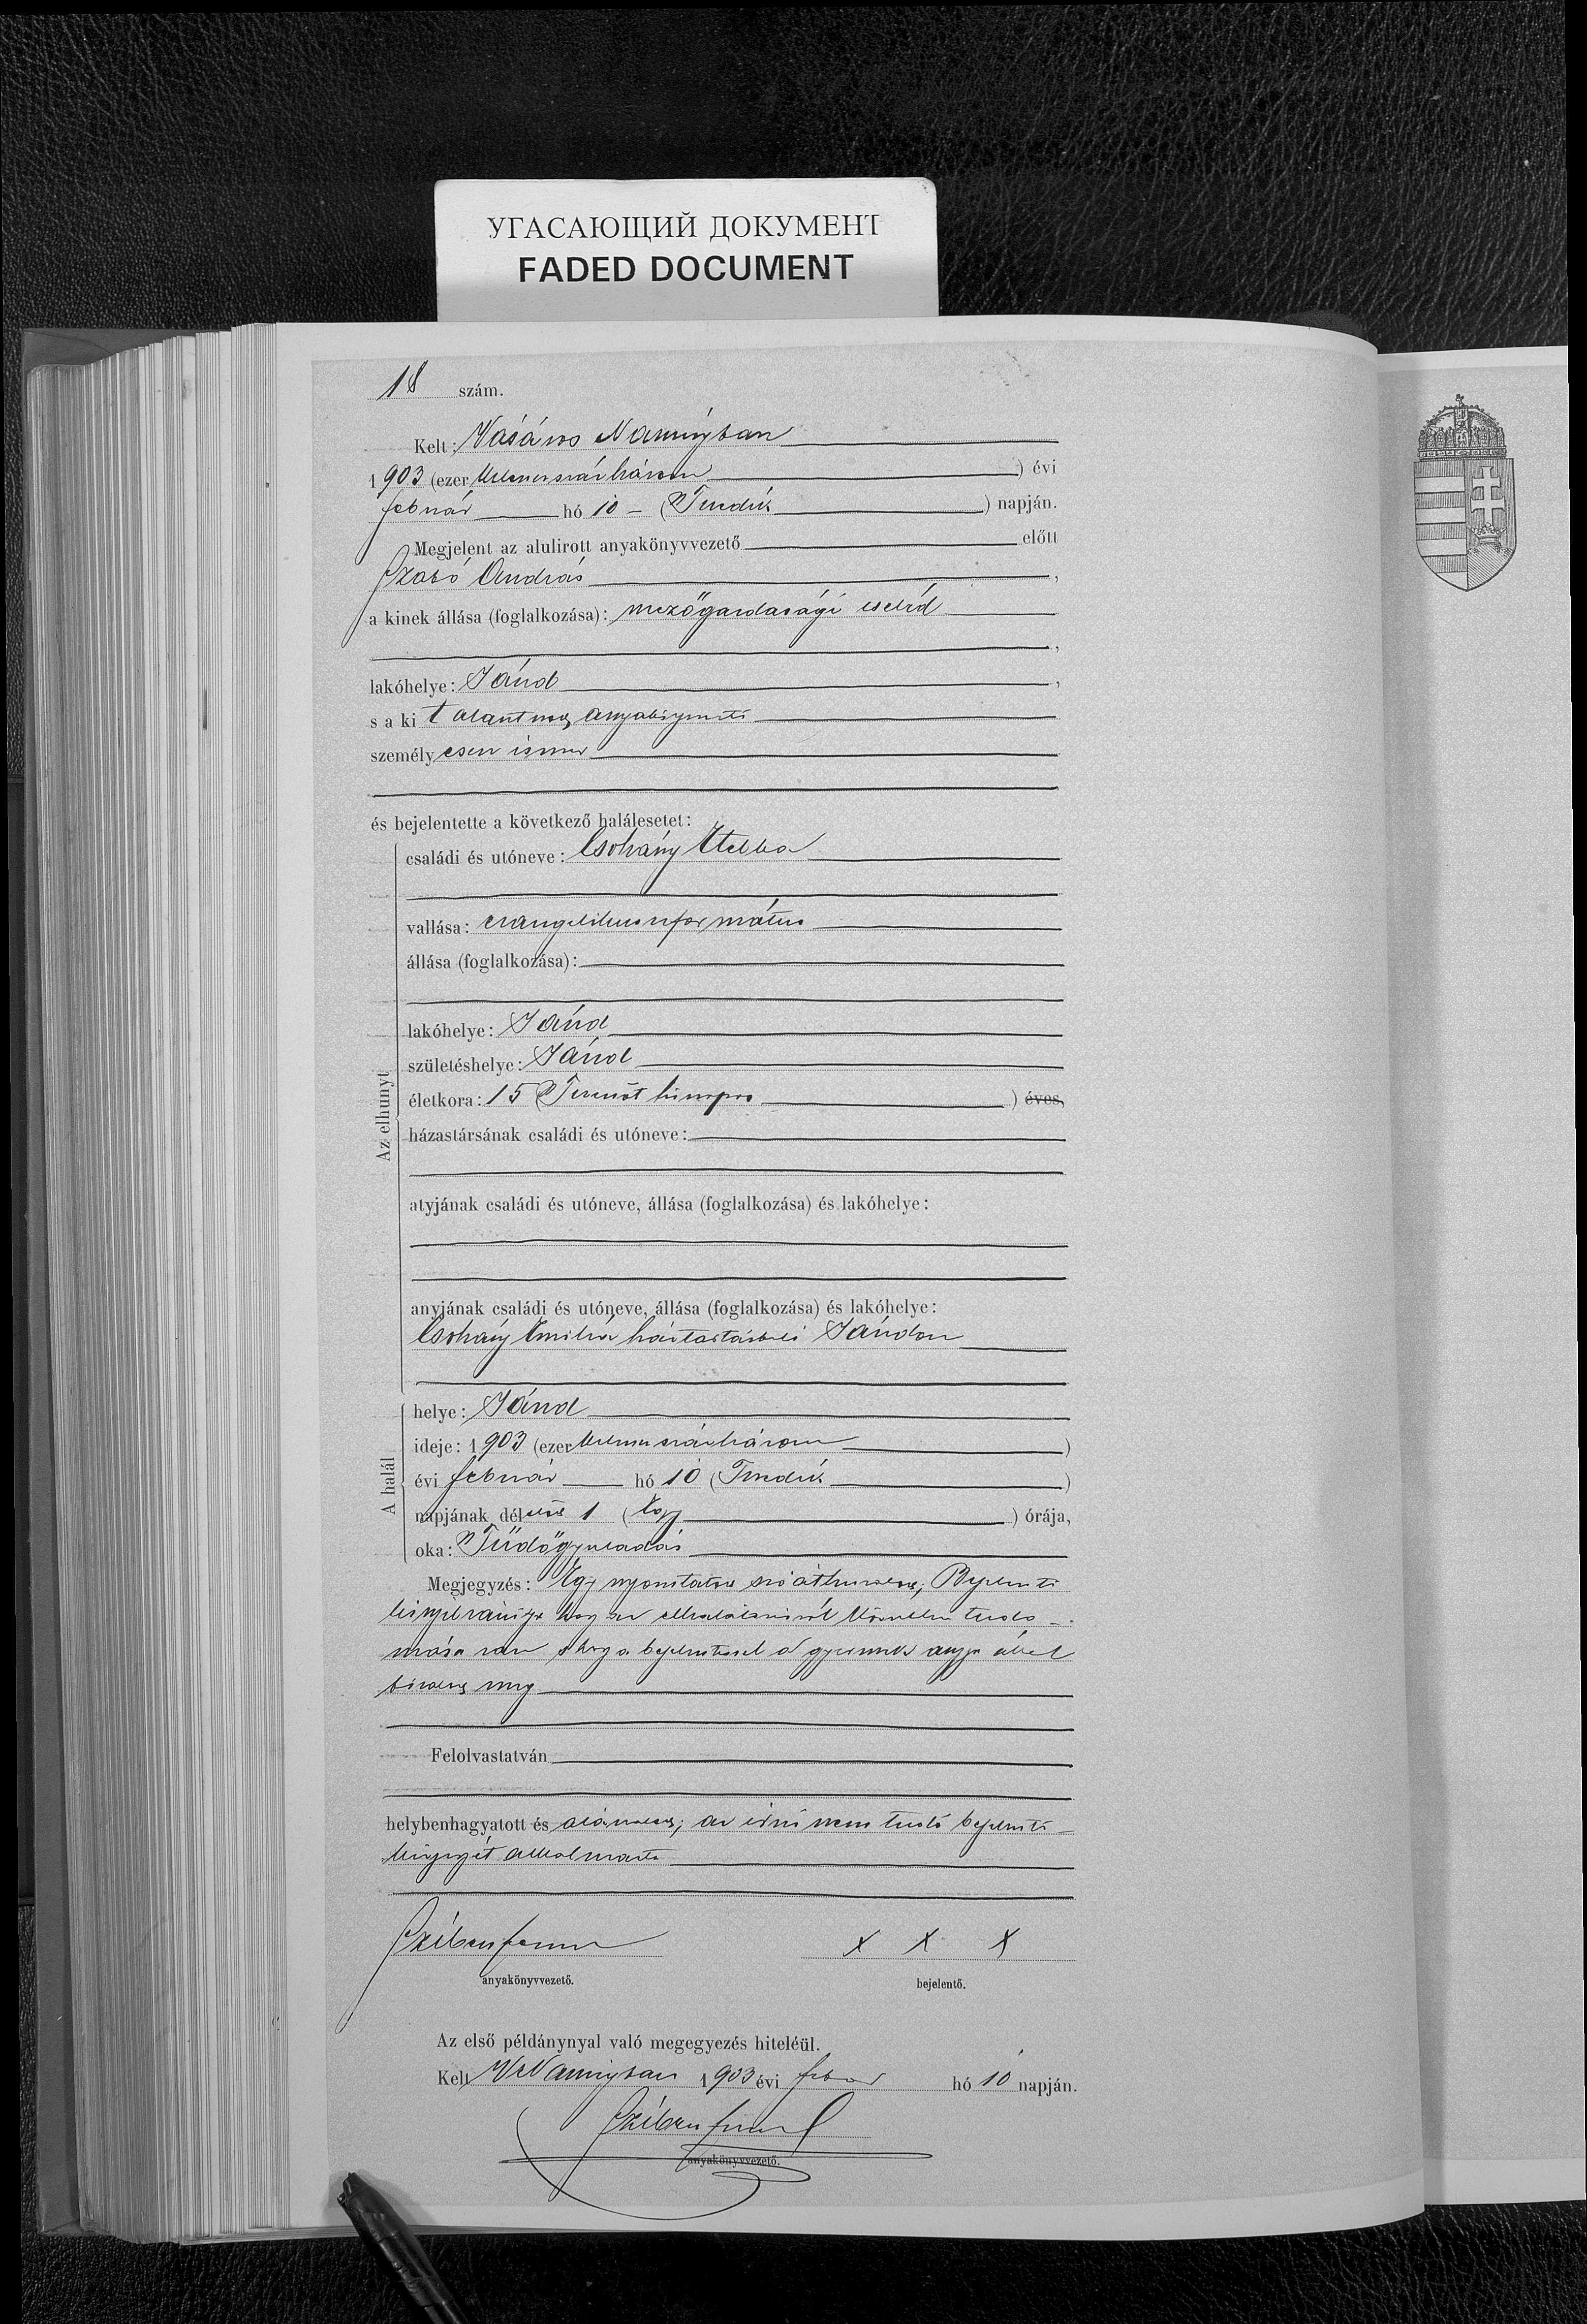 УГАСАЮЩИЙ ДОКУМЕНТ
FADED DOCUMENT
18 szám.
Kelt: Vásáros Naményban
1903 (ezer kilencszázhárom) évi
február hó 10 (Tizedik) napján.
Megjelent az alulirott anyakönyvvezető előtt
Szabó András,
a kinek állása (foglalkozása): mezőgazdasági cseléd
,
lakóhelye: Jánd,
s a kit alantnevezett anyakönyvvezető
személyesen ismer
és bejelentette a következő halálesetet:
családi és utóneve: Csohány Etelka
vallása: evangelikus református
állása (foglalkozása):
lakóhelye: Jánd
születéshelye: Jánd
életkora: 15 (Tizenöt hónapos) éves.
házastársának családi és utóneve:
atyjának családi és utóneve, állása (foglalkozása) és lakóhelye:
anyjának családi és utóneve, állása (foglalkozása) és lakóhelye:
Csohány Emilia háztartásbeli Jándon
Az elhunyt
helye: Jánd
ideje: 1903 (ezer kilencszázhárom)
évi február hó 10 (Tizedik)
napjának délelőtt 1 (Egy) órája,
oka: Tüdőgyuladás
A halál
Megjegyzés: Egy nyomtatott szó áthúzva; Bejelentő
hogy az elhalálozásról közvetlen tudo-
mása van s hogy a bejelentéssel a gyermek anyja által
bizatott meg
Felolvastatván
helybenhagyatott és az írni nem tudó bejelentő
kézjegyét alkalmazta
anyakönyvvezető.
x x x
bejelentő.
Az első példánynyal való megegyezés hiteléül.
Kelt VNaményban 1903 évi február hó 10 napján.
anyakönyvvezető.